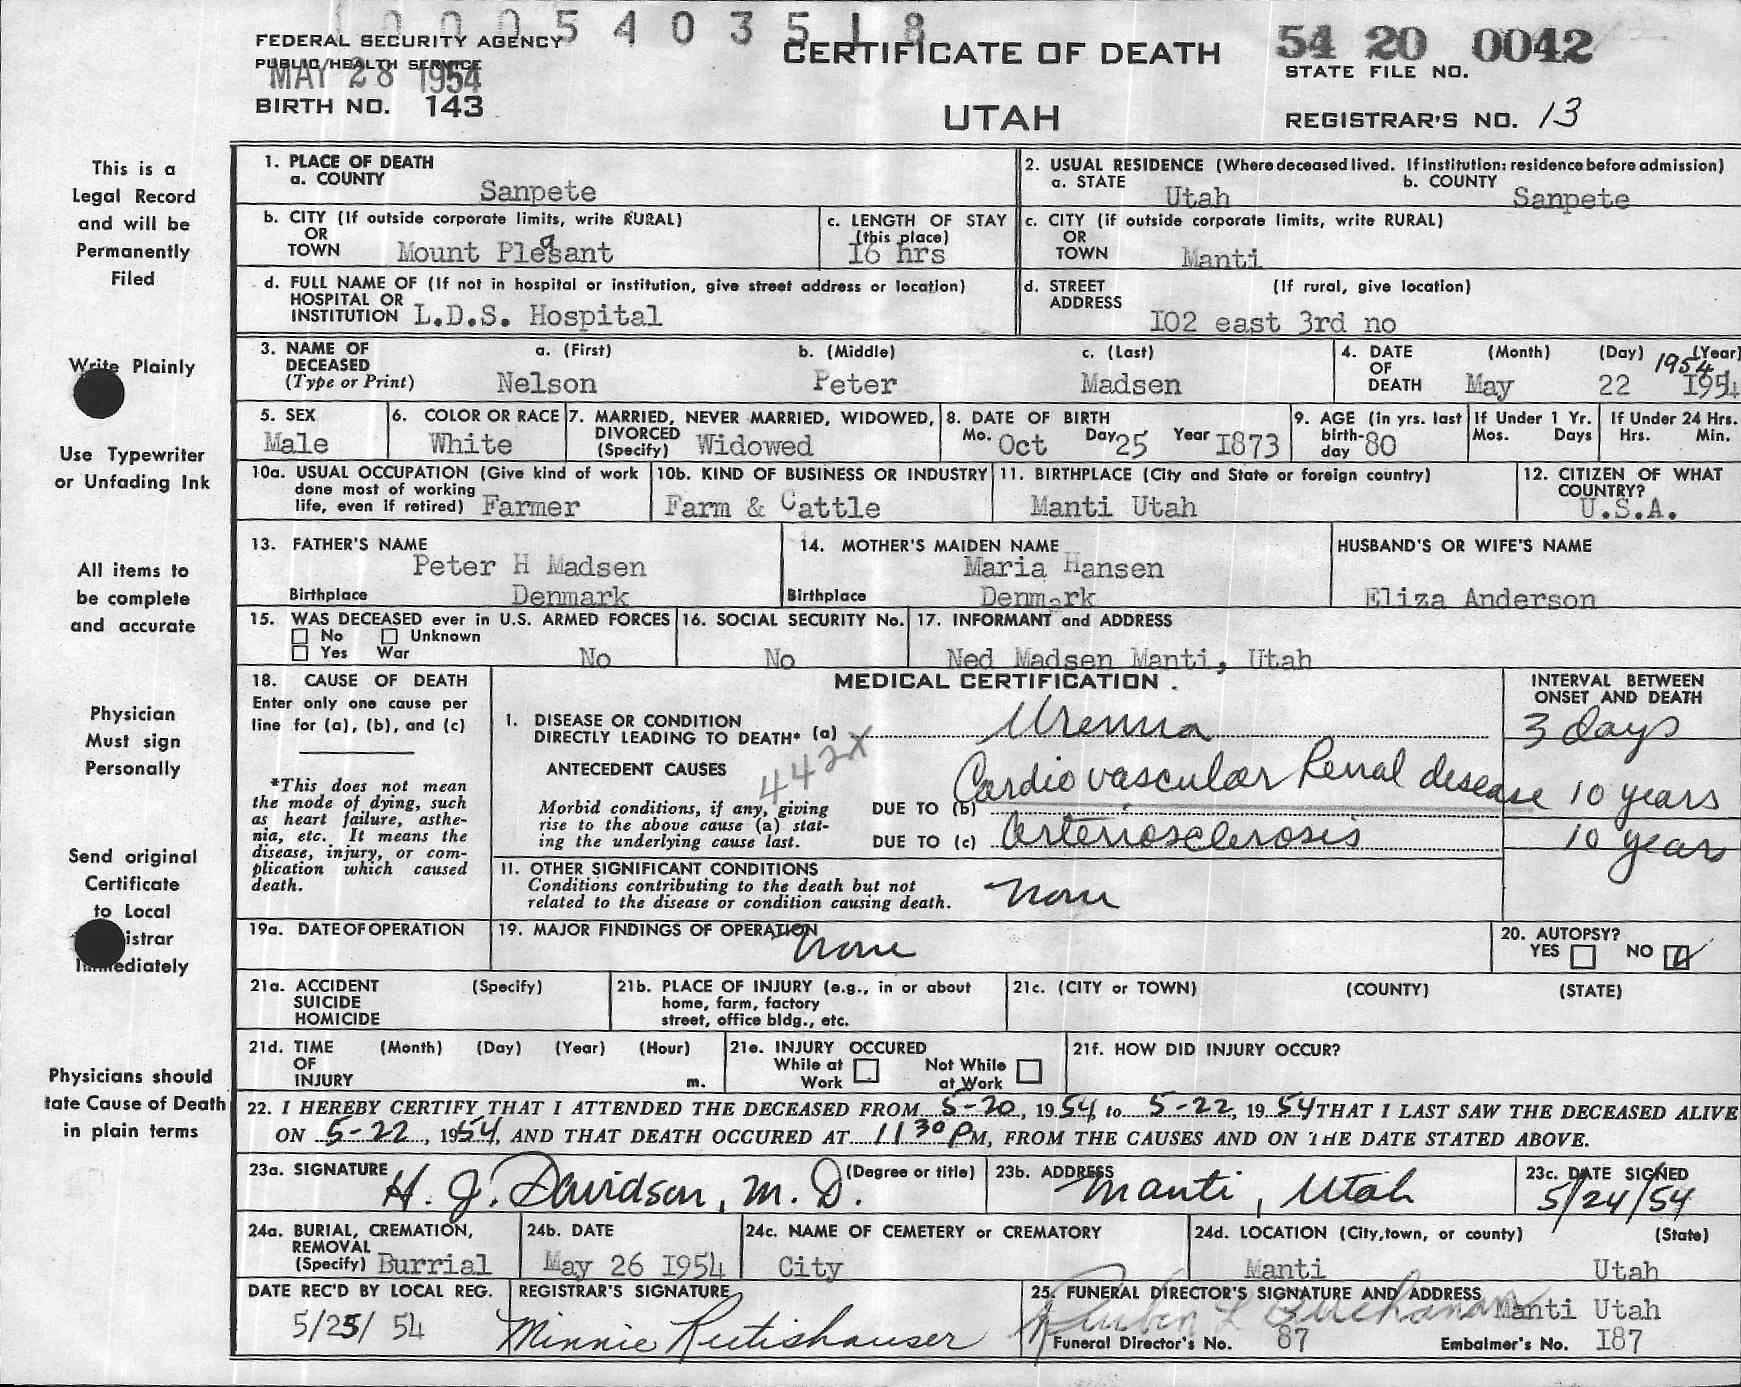 1 0 0 0 5 4 0 3 5 1 8
FEDERAL SECURITY AGENCY
PUBLIC HEALTH SERVICE
MAY 28 1954
BIRTH NO. 143
CERTIFICATE OF DEATH
UTAH
54 20 0042
STATE FILE NO.
REGISTRAR'S NO. 13
This is a
Legal Record
and will be
Permanently
Filed
Write Plainly
Use Typewriter
or Unfading Ink
All items to
be complete
and accurate
Physician
Must sign
Personally
Send original
Certificate
to Local
istrar
Immediately
Physicians should
tate Cause of Death
in plain terms
1. PLACE OF DEATH
a. COUNTY Sanpete
2. USUAL RESIDENCE (Where deceased lived. If institution: residence before admission)
a. STATE Utah b. COUNTY Sanpete
b. CITY (If outside corporate limits, write RURAL)
OR
TOWN Mount Plesant a
c. LENGTH OF STAY
(this place)
16 hrs
c. CITY (if outside corporate limits, write RURAL)
OR
TOWN Manti
d. FULL NAME OF (If not in hospital or institution, give street address or location)
HOSPITAL OR
INSTITUTION L.D.S. Hospital
d. STREET (If rural, give location)
ADDRESS
I02 east 3rd no
3. NAME OF DECEASED (Type or Print)
a. (First) b. (Middle) c. (Last)
Nelson Peter Madsen
4. DATE OF DEATH (Month) (Day) (Year)
1954
May 22 I954
5. SEX
Male
6. COLOR OR RACE
White
7. MARRIED, NEVER MARRIED, WIDOWED,
DIVORCED
(Specify) Widowed
8. DATE OF BIRTH
Mo. Oct Day 25 Year I873
9. AGE (in yrs. last
birth-
day 80
If Under 1 Yr.
Mos. Days
If Under 24 Hrs.
Hrs. Min.
10a. USUAL OCCUPATION (Give kind of work
done most of working
life, even if retired) Farmer
10b. KIND OF BUSINESS OR INDUSTRY
Farm & Cattle
11. BIRTHPLACE (City and State or foreign country)
Manti Utah
12. CITIZEN OF WHAT
COUNTRY?
U.S.A.
13. FATHER'S NAME
Peter H Madsen
Birthplace Denmark
14. MOTHER'S MAIDEN NAME
Maria Hansen
Birthplace Denmark
HUSBAND'S OR WIFE'S NAME
Eliza Anderson
15. WAS DECEASED ever in U.S. ARMED FORCES
No Unknown
Yes War No
16. SOCIAL SECURITY No.
No
17. INFORMANT and ADDRESS
Ned Madsen Manti, Utah
18. CAUSE OF DEATH
Enter only one cause per
line for (a), (b), and (c)
*This does not mean
the mode of dying, such
as heart failure, asthe-
nia, etc. It means the
disease, injury, or com-
plication which caused
death.
MEDICAL CERTIFICATION .
INTERVAL BETWEEN
ONSET AND DEATH
1. DISEASE OR CONDITION
DIRECTLY LEADING TO DEATH* (a) Uremia 3 days
442X
ANTECEDENT CAUSES
Morbid conditions, if any, giving
rise to the above cause (a) stat-
ing the underlying cause last.
DUE TO (b) Cardio vascular Renal disease 10 years
DUE TO (c) Arteriosclerosis 10 years
11. OTHER SIGNIFICANT CONDITIONS
Conditions contributing to the death but not
related to the disease or condition causing death. none
19a. DATE OF OPERATION
19. MAJOR FINDINGS OF OPERATION
none
20. AUTOPSY?
YES NO
21a. ACCIDENT (Specify)
SUICIDE
HOMICIDE
21b. PLACE OF INJURY (e.g., in or about
home, farm, factory
street, office bldg., etc.
21c. (CITY or TOWN) (COUNTY) (STATE)
21d. TIME (Month) (Day) (Year) (Hour)
OF
INJURY m.
21e. INJURY OCCURED
While at Work
Not While at Work
21f. HOW DID INJURY OCCUR?
22. I HEREBY CERTIFY THAT I ATTENDED THE DECEASED FROM 5-20, 1954 to 5-22, 1954 THAT I LAST SAW THE DECEASED ALIVE
ON 5-22, 1954, AND THAT DEATH OCCURED AT 11 30 PM, FROM THE CAUSES AND ON THE DATE STATED ABOVE.
23a. SIGNATURE (Degree or title)
H. J. Davidson, M. D.
23b. ADDRESS
Manti, Utah
23c. DATE SIGNED
5/24/54
24a. BURIAL, CREMATION,
REMOVAL
(Specify) Burrial
24b. DATE
May 26 I954
24c. NAME OF CEMETERY or CREMATORY
City
24d. LOCATION (City,town, or county) (State)
Manti Utah
DATE REC'D BY LOCAL REG.
5/25/ 54
REGISTRAR'S SIGNATURE
Minnie Rutishauser
25. FUNERAL DIRECTOR'S SIGNATURE AND ADDRESS
Reuben L Buchanan Manti Utah
Funeral Director's No. 87 Embalmer's No. I87